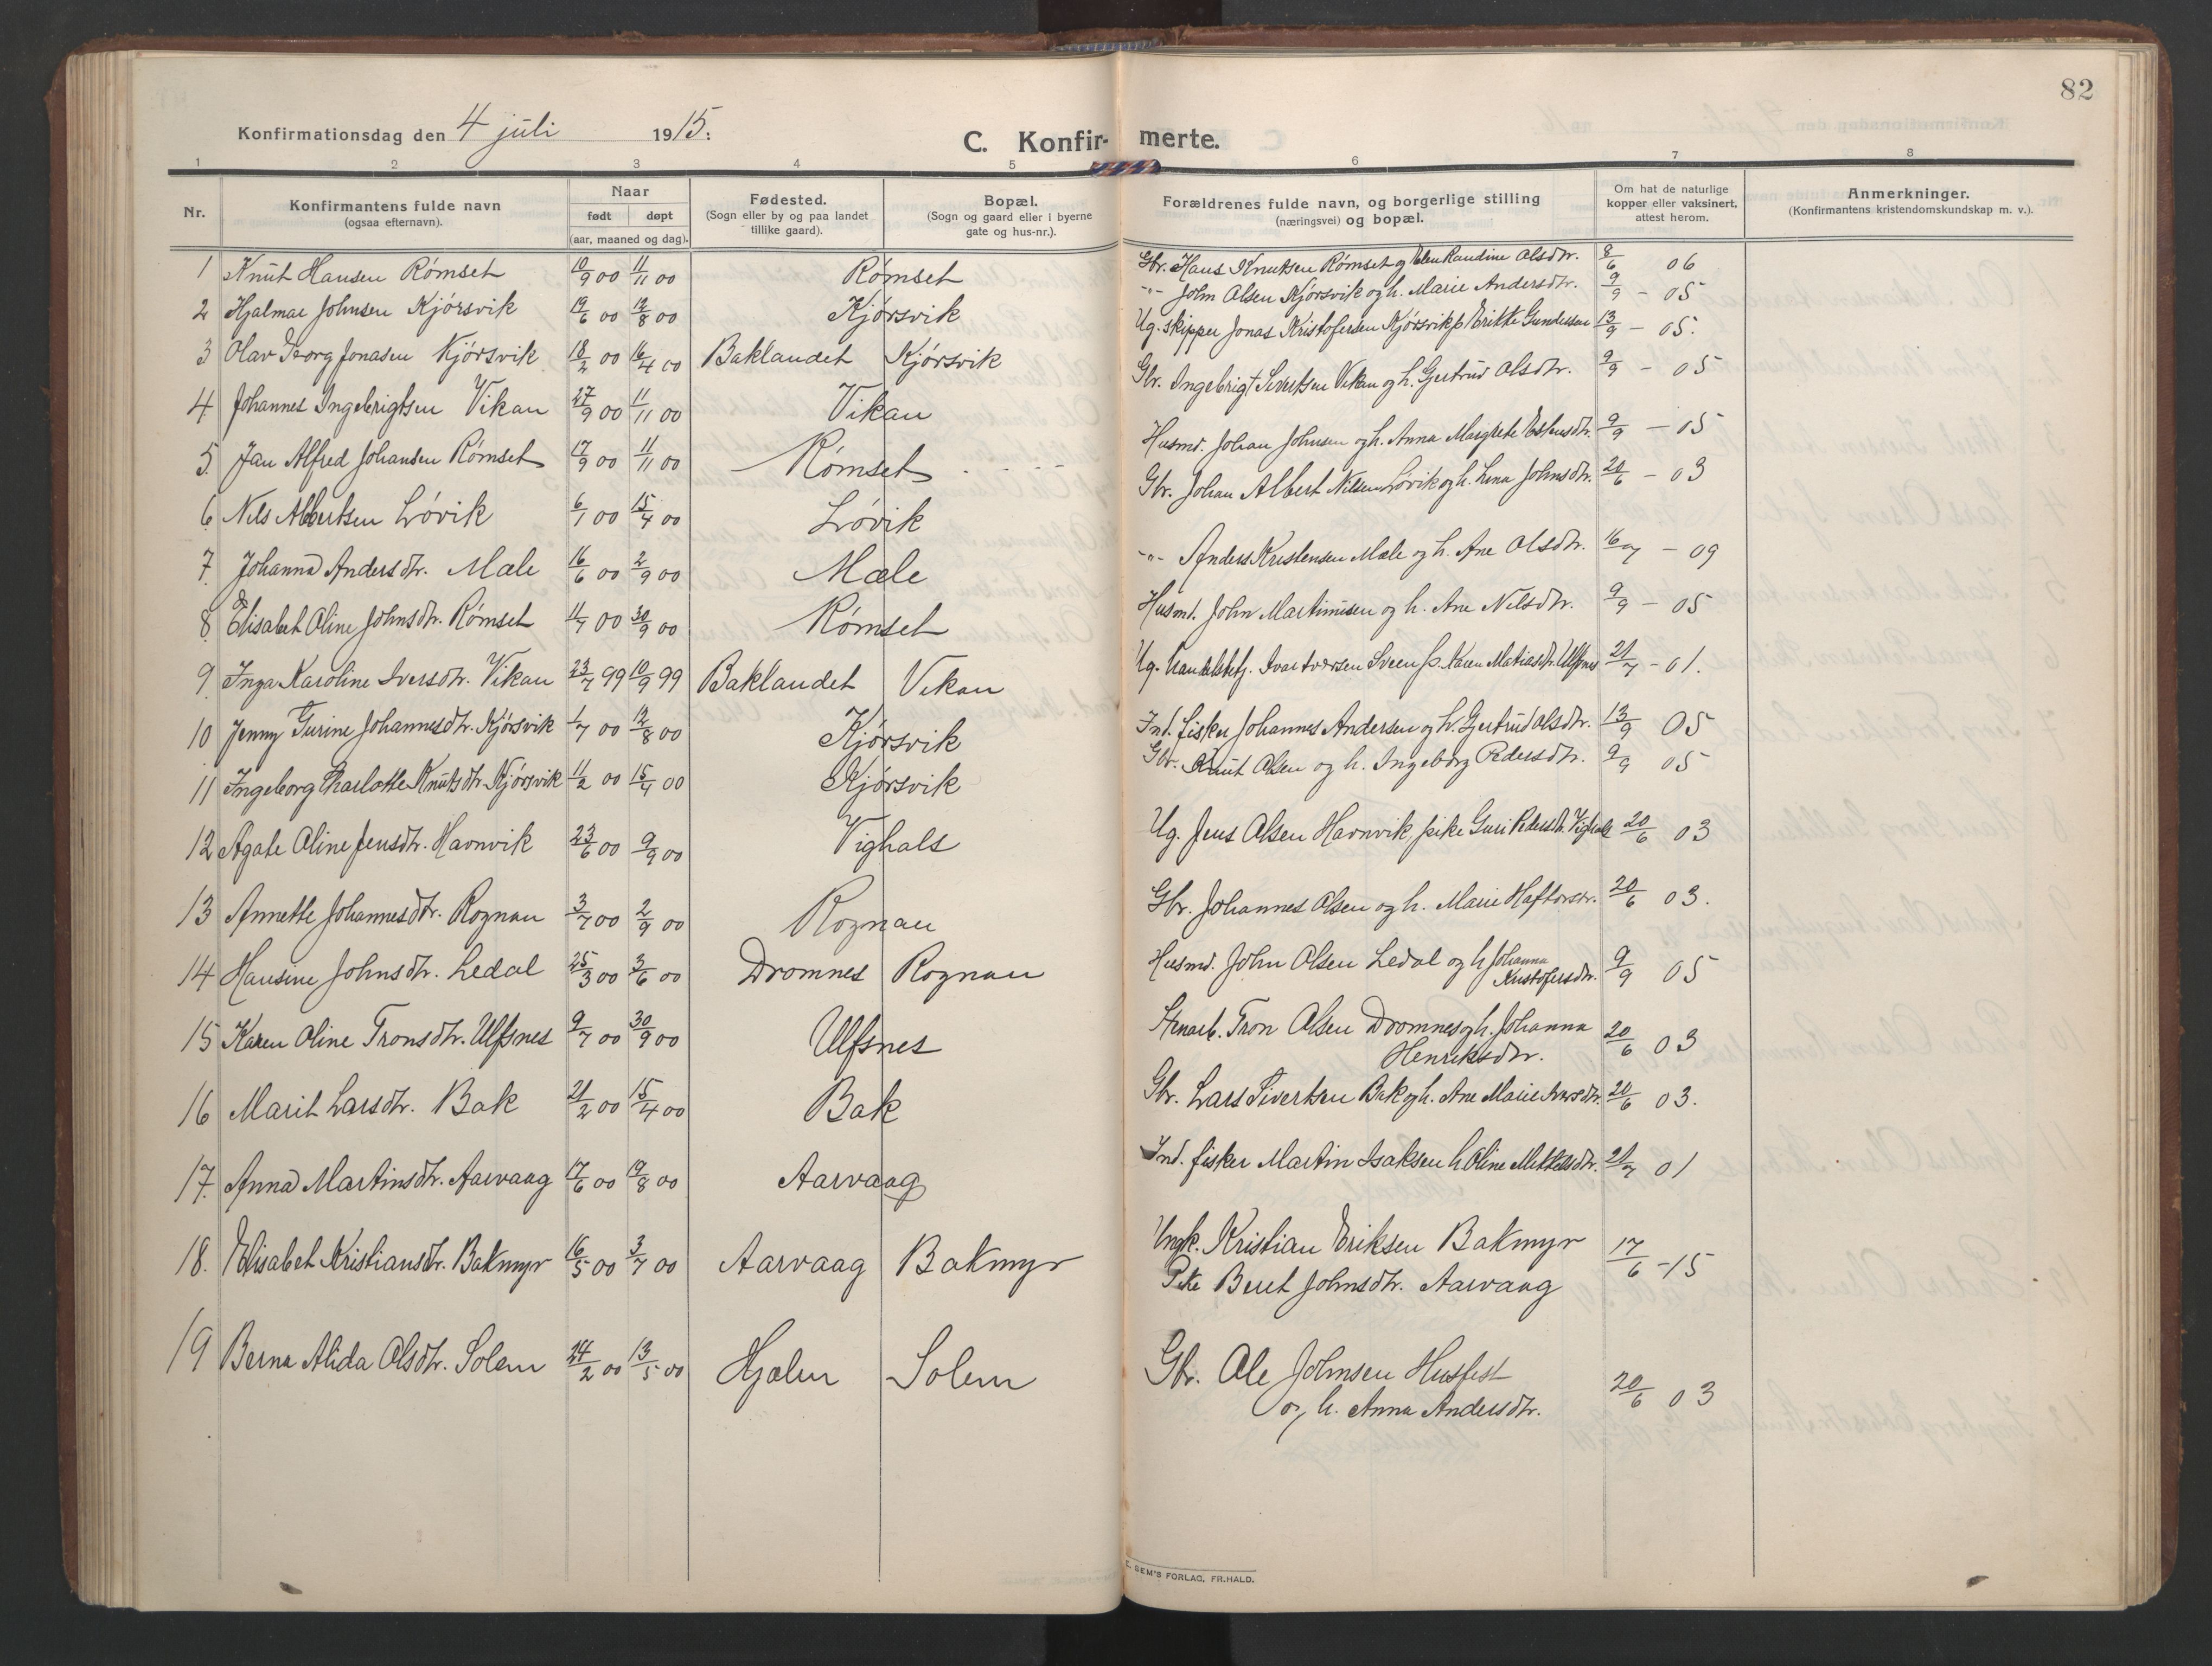 82
Konfirmationsdag den 4 juli 1915:
C. Konfirmerte.
1 2 3 4 5 6 7 8
Nr. Konfirmantens fulde navn (ogsaa efternavn). Naar født døpt (aar, maaned og dag). Fødested. (Sogn eller by og paa landet tillike gaard). Bopæl. (Sogn og gaard eller i byerne gate og hus-nr.). Forældrenes fulde navn, og borgerlige stilling (næringsvei) og bopæl. Om hat de naturlige kopper eller vaksinert, attest herom. Anmerkninger. (Konfirmantens kristendomskundskap m. v.).
1 Knut Hansen Rømset 10/9 00 11/11 00 Rømset Gbr. Hans Knutsen Rømset og Elen Randine Olsdtr. 8/6 06
2 Hjalmar Johnsen Kjørsvik 19/6 00 12/8 00 Kjørsvik -"- John Olsen Kjørsvik og h. Marie Andersdtr. 9/9 - 05
3 Olav Georg Jonasen Kjørsvik 18/2 00 16/4 00 Baklandet Kjørsvik Ug. skipper Jonas Kristofersen Kjørsvik p. Erikke Gundersen 13/9 - 05.
4 Johannes Ingebrigtsen Vikan 27/9 00 11/11 00 Vikan Gbr. Ingebrigt Sivertsen Vikan og h. Gjertrud Olsdtr. 9/9 - 05
5. Jan Alfred Johansen Rømset 17/9 00 11/11 00 Rømset Husmd. Johan Johnsen og h. Anna Margrete Estensdtr. 9/9 - 05
6 Nils Albertsen Løvik 6/1 00 15/4 00 Løvik Gbr. Johan Albert Nilsen Løvik og h. Lina Johnsdtr. 20/6 - 03
7. Johanna Andersdtr. Mæle 16/6 00 2/9 00 Mæle -"- Anders Kristensen Mæle og h. Ane Olsdtr. 16/7 - 09
8 Elisabet Oline Johnsdtr. Rømset 11/7 00 30/9 00 Rømset Husmd. John Martinusen og h. Ane Nilsdtr. 9/9 - 05
9 Inga Karoline Iversdtr. Vikan 23/7 99 10/9 99 Baklandet Vikan Ug. handelsbetj. Ivar Iversen Sveen p. Karen Matiasdtr. Ulfsnes 21/7 - 01.
10 Jenny Turine Johannesdtr. Kjørsvik 1/7 00 12/8 00 Kjørsvik Ind. fisker Johannes Andersen og h. Gjertrud Olsdtr. 13/9 05
11 Ingeborg Charlotte Knutsdtr. Kjørsvik 11/2 00 15/4 00 Kjørsvik Gbr. Knut Olsen og h. Ingeborg Pedersdtr. 9/9 05
12 Agate Oline Jensdtr. Havnvik 23/6 00 9/9 00 Vighals Ug. Jens Olsen Havnvik, pike Guri Pedersdtr. Vighals 20/6 03
13 Annette Johannesdtr. Rognan 3/7 00 2/9 00 Rognan Gbr. Johannes Olsen og h. Marie Haftorsdtr. 20/6 03.
14 Hansine Johnsdtr. Ledal 25/3 00 3/6 00 Dromnes Rognan Husmd. John Olsen Ledal og h. Johanna
Kristofersdtr. 9/9 05
15 Karen Oline Tronsdtr. Ulfsnes 9/7 00 30/9 00 Ulfsnes Stenarb. Tron Olsen Dromnes og h. Johanna
Henriksdtr. 20/6 03
16 Marit Larsdtr. Bak 21/2 00 15/4 00 Bak Gbr. Lars Sivertsen Bak og h. Ane Marie Iversdtr. 20/6 03.
17. Anna Martinsdtr. Aarvaag 17/6 00 19/8 00 Aarvaag Ind. fisker Martin Isaksen h. Oline Mikkelsdtr. 21/7 01
18. Elisabet Kristiansdtr. Bakmyr 16/5 00 3/7 00 Aarvaag Bakmyr Ungk. Kristian Eriksen Bakmyr
Pike Beret Johnsdtr. Aarvaag 17/6 - 15
19 Berna Alida Olsdtr. Solem 24/2 00 13/5 00 Hjælen Solem Gbr. Ole Johnsen Husfest
og h. Anna Andersdtr. 20/6 03
SEM'S FORLAG, FR.HALD.